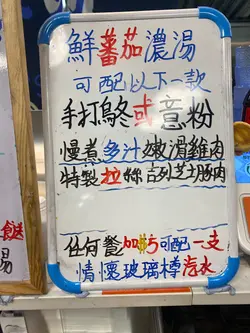 鮮蕃茄濃湯
可配以下一款
手打烏冬或意粉
慢煮多汁嫩滑雞肉
特製拉絲芝士豚肉
任何餐加$5可配一支
情懷玻璃樽汽水
湯